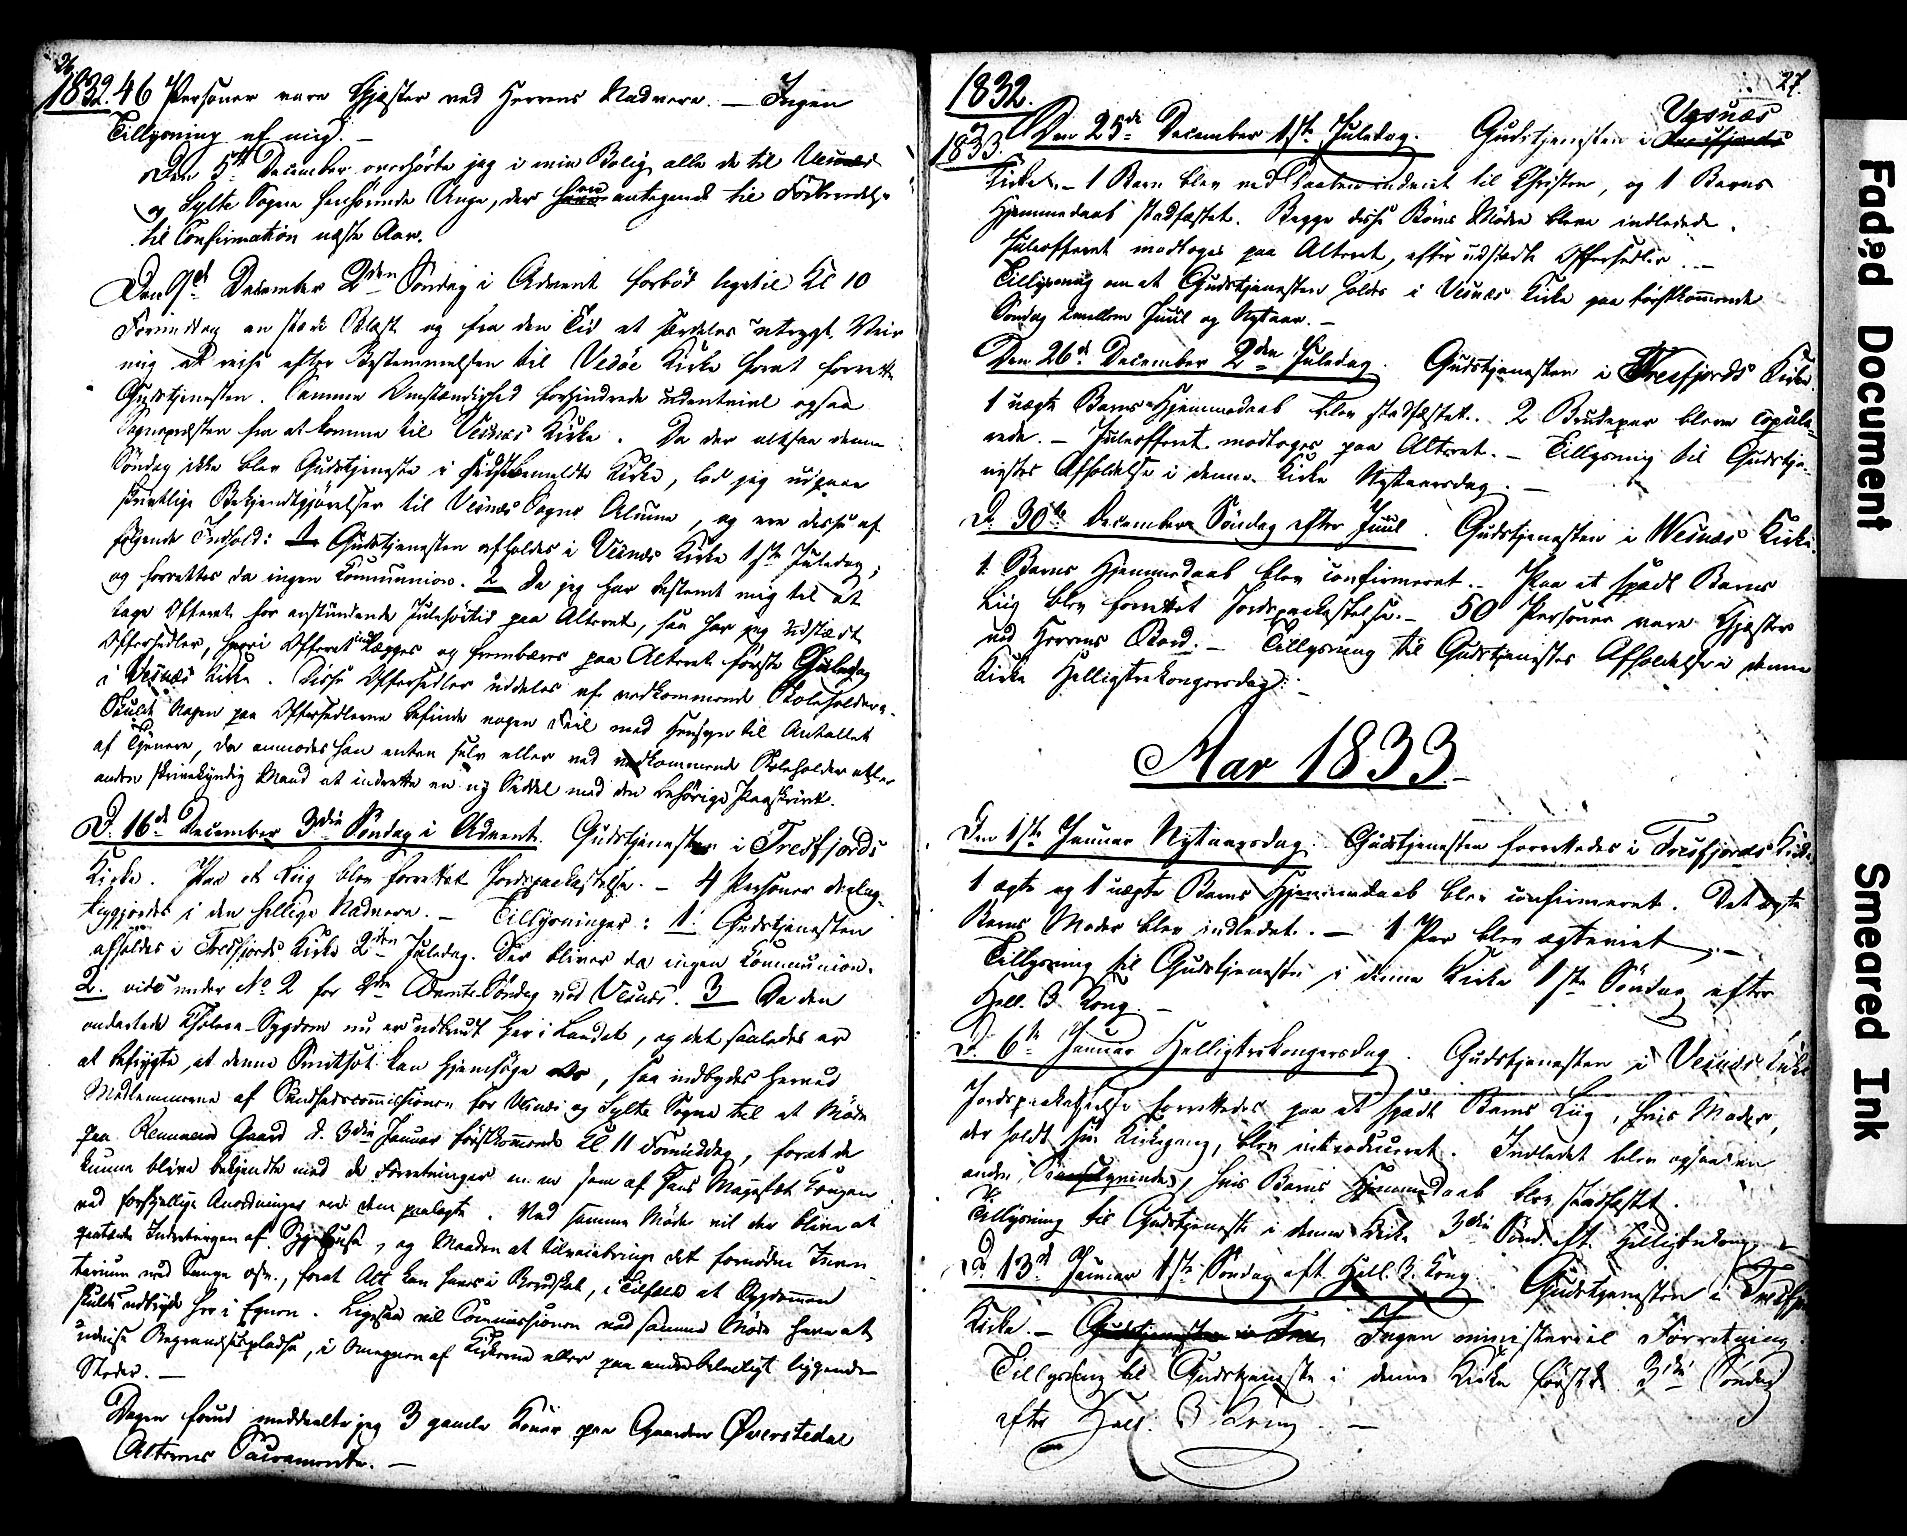 26
1832. 46 Personer vare Gjæster ved Herrens Nadvere. — Ingen
Tillysning af mig. —
Den 5te December overhørte jeg i min Bolig alle de til Vesnæs
og Sylte Sogne henhørende Unge, der ere antagende til Forberedelse
til Confirmation næste Aar.
Den 9de December 2den Søndag i Advent forbød ligetil Kl 10
Formiddag en stærk Blæst og fra den Tid et særdeles utrygt Veir
mig at reise efter Bestemmelsen til Vedøe Kirke forat forrette
Gudstjenesten. Samme Omstændighed forhindrede udentvivl ogsaa
Sognepræsten fra at komme til Vesnæs Kirke. Da der altsaa denne
Søndag ikke blev Gudstjeneste i sidstbemeldte Kirke, lod jeg udgaae
skrivtlige Bekjendtgjørelser til Vesnæs Sogns Almue, og ere disse af
følgende Indhold: 1 Gudstjenesten afholdes i Vesnæs Kirke 1ste Juledag,
og forrettes da ingen Communion. 2 Da jeg har bestemt mig til at
tage Offeret for anstundende Julehøitid paa Alteret, saa har jeg udstædt
Offersedler, hvori Offeret indlægges og frembæres paa Alteret første Juledag
i Vesnæs Kirke. Disse Offersedler uddeles af vedkommende Skoleholdere.
Skulde Nogen paa Offersedlerne befinde nogen Feil med Hensyn til Antallet
af Tjenere, da anmodes han enten selv eller ved vedkommende Skoleholder eller
anden skrivekyndig Mand at indrette en ny Seddel med den behørige Paaskrivt.
D. 16de December 3die Søndag i Advent. Gudstjenesten i Tresfjords
Kirke. Paa et Liig blev forrettet Jordspaakastelse. — 4 Personer deelag-
tiggjordes i den hellige Nadvere. — Tillysninger: 1. Gudstjenesten
afholdes i Tresfjords Kirke 2den Juledag. Der bliver da ingen Communion.
2. vide under No 2 for 2den Advents-Søndag ved Vesnæs. 3 Da den
ondartede Cholera-Sygdom nu er udbrudt her i Landet, og det saaledes er
at befrygte, at denne Smitsot kan hjemsøge os, saa indbydes herved
Medlemmerne af Sundhedscommissionen for Vesnæs og Sylte Sogne til et Møde
paa Gaard d. 3die Januar førstkommende Kl 11 Formiddag, forat de
kunne blive bekjendte med de Forretninger m. m. som af Hans Majestæt Kongen
ved forskjellige Anordninger ere dem paalagte. Ved samme Møde vil der blive at
Indretningen af Sygehuse, og Maaden at tilveiebringe det fornødne Inven-
tarium med Senge osv., forat Alt kan haves i Beredskab, i Tilfælde at Sygdommen
skulde udbryde her i Egnen. Ligesaa vil Commissionen ved samme Møde have at
udvise Begravelsespladse, i Omegnen af Kirkerne eller paa andre beleiligt liggende
Steder. —
Dagen forud meddeelte jeg 3 gamle Koner paa Gaarden Øverstedal
Alterens Sacramente. —
27.
1832.
&
1833.
Den 25de December 1ste Juledag. Gudstjenesten i Tresfjords Vesnæs
Kirke. — 1 Barn blev ved Daaben indviet til Christen, og 1 Barns
Hjemmedaab stadfæstet. Begge disse Børns Mødre bleve indledede.
Juleofferet modtoges paa Alteret, efter udstædte Offersedler. —
Tillysning om at Gudstjenesten holdes i Vesnæs Kirke paa førstkommende
Søndag imellem Juul og Nytaar. —
Den 26de December 2den Juledag. Gudstjenesten i Tresfjords Kirke.
1 uægte Barns Hjemmedaab blev stadfæstet. 2 Brudepar bleve copule-
rede. — Juleofferet modtoges paa Alteret. — Tillysning til Gudstje-
nestes Afholdelse i denne Kirke Nytaarsdag. —
D. 30te December Søndag efter Juul. Gudstjenesten i Wesnæs Kirke.
1 Barns Hjemmedaab blev confirmeret. — Paa et spædt Barns
Liig blev forrettet Jordspaakastelse. — 50 Personer vare Gjæster
ved Herrens Bord. — Tillysning til Gudstjenestes Afholdelse i denne
Kirke Helligtrekongersdag. —
Aar 1833.
Den 1ste Januar Nytaarsdag. Gudstjenesten forrettedes i Tresfjords Kirke.
1 ægte og 1 uægte Barns Hjemmedaab blev confirmeret. Det ægte
Barns Moder blev indledet. — 1 Par blev ægteviet. —
Tillysning til Gudstjeneste i denne Kirke 1ste Søndag efter
Hell. 3 Kong. —
D. 6te Januar Helligtrekongersdag. Gudstjenesten i Vesnæs Kirke
Jordspaakastelse forrettedes paa et spædt Barns Liig, hvis Moder,
der holdt sin Kirkegang, blev introduceret. Indledet blev ogsaa en
anden, hvis Barns Hjemmedaab blev stadfæstet.
Tillysning til Gudstjeneste i denne Kirke 3die Sønd. eft. Helligtrekong. —
D. 13de Januar 1ste Søndag eft. Hell. 3. Kong. Gudstjenesten i Tresfj.
Kirke. — Gudstjenesten i Tre Ingen ministeriel Forretning.
Tillysning til Gudstjeneste i denne Kirke førstk. 3die Søndag
efter Hell. 3 Kong. —
Faded Document
Smeared Ink